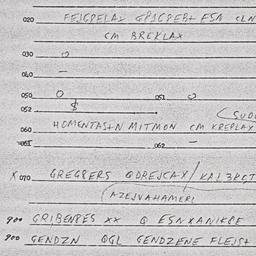 020 FEJGPELAX GPAGPEB+ FSA CLN
CM BREKLAX
030 O
040 —
050 O 051 O
052 $
(SUDO
060 HOMENTAS+N MITMON CM KREPLAX
062 —
X 070 GREGBERS GDREJCAX/KALZKCT
(AZEJVAHAMERI
900 GRIBENPES XX Q ESNXANIKPF
900 GENDZN QGL GENDZFNE FLEJS+